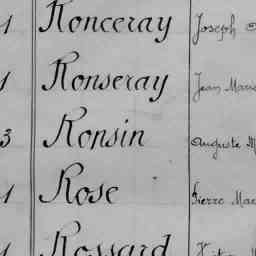 1 Ronceray Joseph
1 Ronseray Jean Marie
3 Ronsin Auguste M
1 Rose Pierre Mar
1 Rossard Victor M